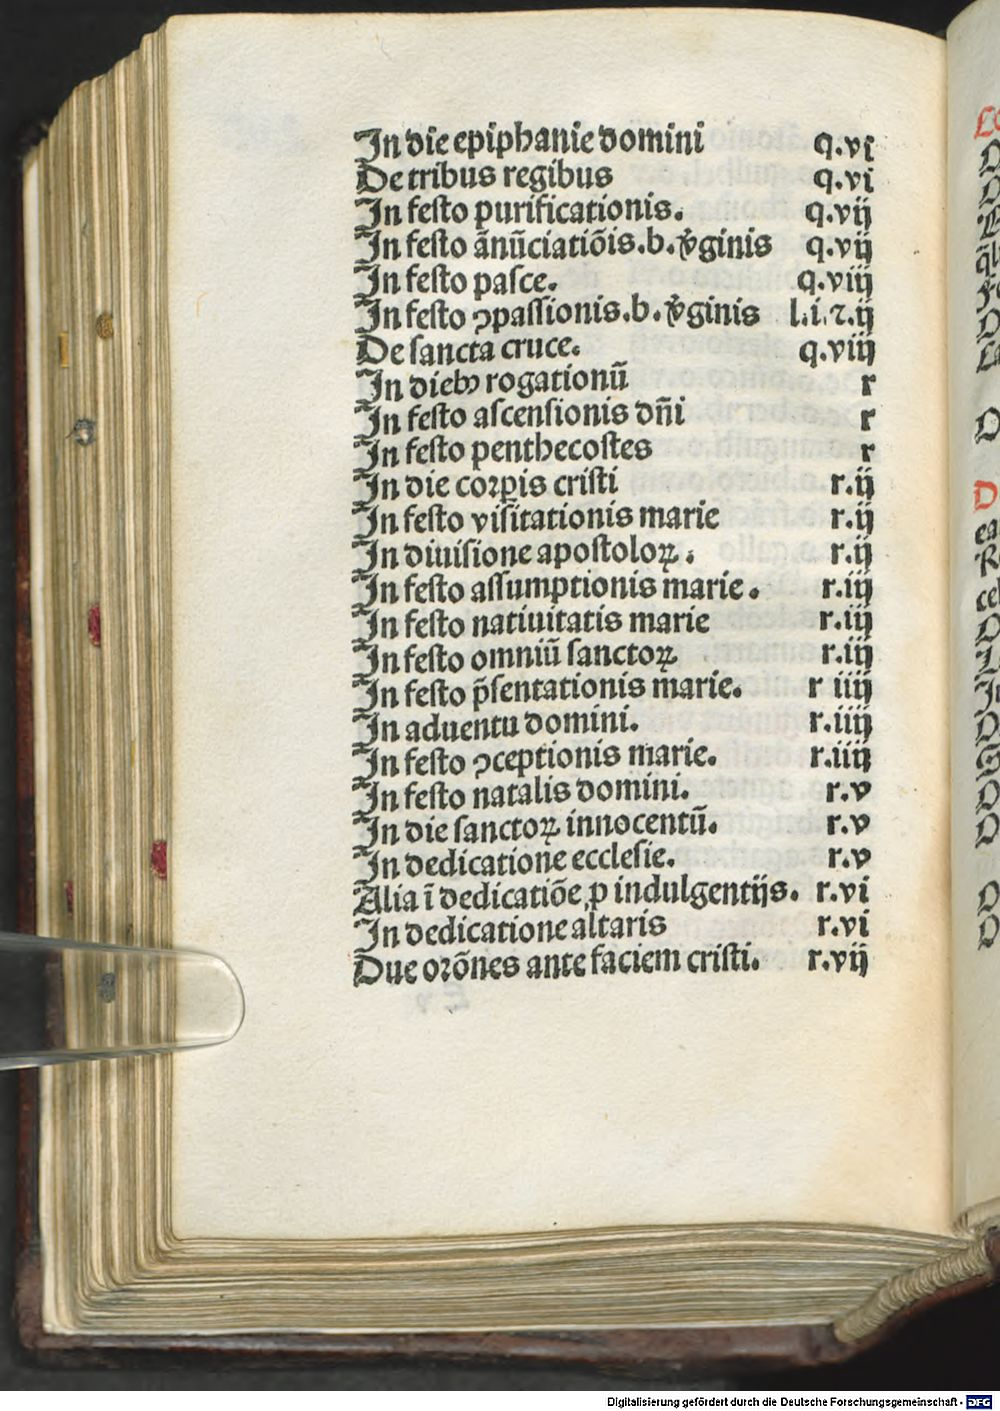 In die epiphanie domini q.vi
De tribus regibus q.vi
In festo purificationis. q.vij
In festo ãnũciatiõis.b.v̄ginis q.vij
In festo pasce. q.viij
In festo ꝯpassionis.b.v̄ginis l.i.⁊.ij
De sancta cruce. q.viij
In diebꝰ rogationũ r
In festo ascensionis dñi r
In festo penthecostes r
In die corꝑis cristi r.ij
In festo visitationis marie r.ij
In diuisione apostoloꝝ. r.ij
In festo assumptionis marie. r.iij
In festo natiuitatis marie r.iij
In festo omniũ sanctoꝝ r.iij
In festo p̃sentationis marie. r iiij
In aduentu domini. r.iiij
In festo ꝯceptionis marie. r.iiij
In festo natalis domini. r.v
In die sanctoꝝ innocentũ. r.v
In dedicatione ecclesie. r.v
Alia ĩ dedicatiõe ꝓ indulgentijs. r.vi
In dedicatione altaris r.vi
Due orõnes ante faciem cristi. r.vij
Digitalisierung gefördert durch die Deutsche Forschungsgemeinschaft - DFG